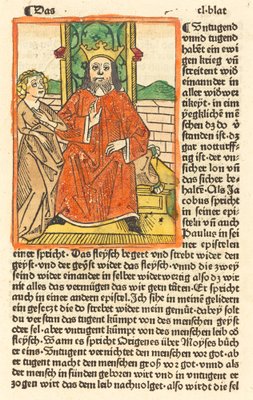 Das
cl·blat
Untugend
vnnd tugend
habent ein ewi
gen krieg vn̄
streitent wid
einander in
aller wid wer
tikeyt· in eim
yegkliche mē
schen dz do vō
standen ist·dz
gat notturff
tig ist·der vn/
sicher lon vn̄
das sicher be/
halte·Als Ja
cobus spricht
in seiner epist
eln vn̄ auch
Paulus in sei
ner epistelen
einer spricht· Das fleysch begert vnd strebt wider den
geyst·vnd der geyst wider das fleysch·vnd die zwey
seind wider einander in selber widerwertig also dz wir
nit alles das vermügen das wir gern täten· Er spricht
auch in einer andern epistel· Jch sihe in meinē gelidern
ein gesetzt die do strebet wider mein gemüt·dabey solt
du verstan das tugent kümpt von des menschen geyst
oder sel·aber vntugent kümpt von des menschen leib oď
fleysch· Wann es spricht Origenes über Moyses büch
er eins· Untugent vernichtet den menschen vor got·ab
er tugent macht den menschen groß vor got· vnnd als
der mensch in sünden geboren wirt vnd in vntugent er
zogen wirt das dem leib nachuolget·also wirdt die sel